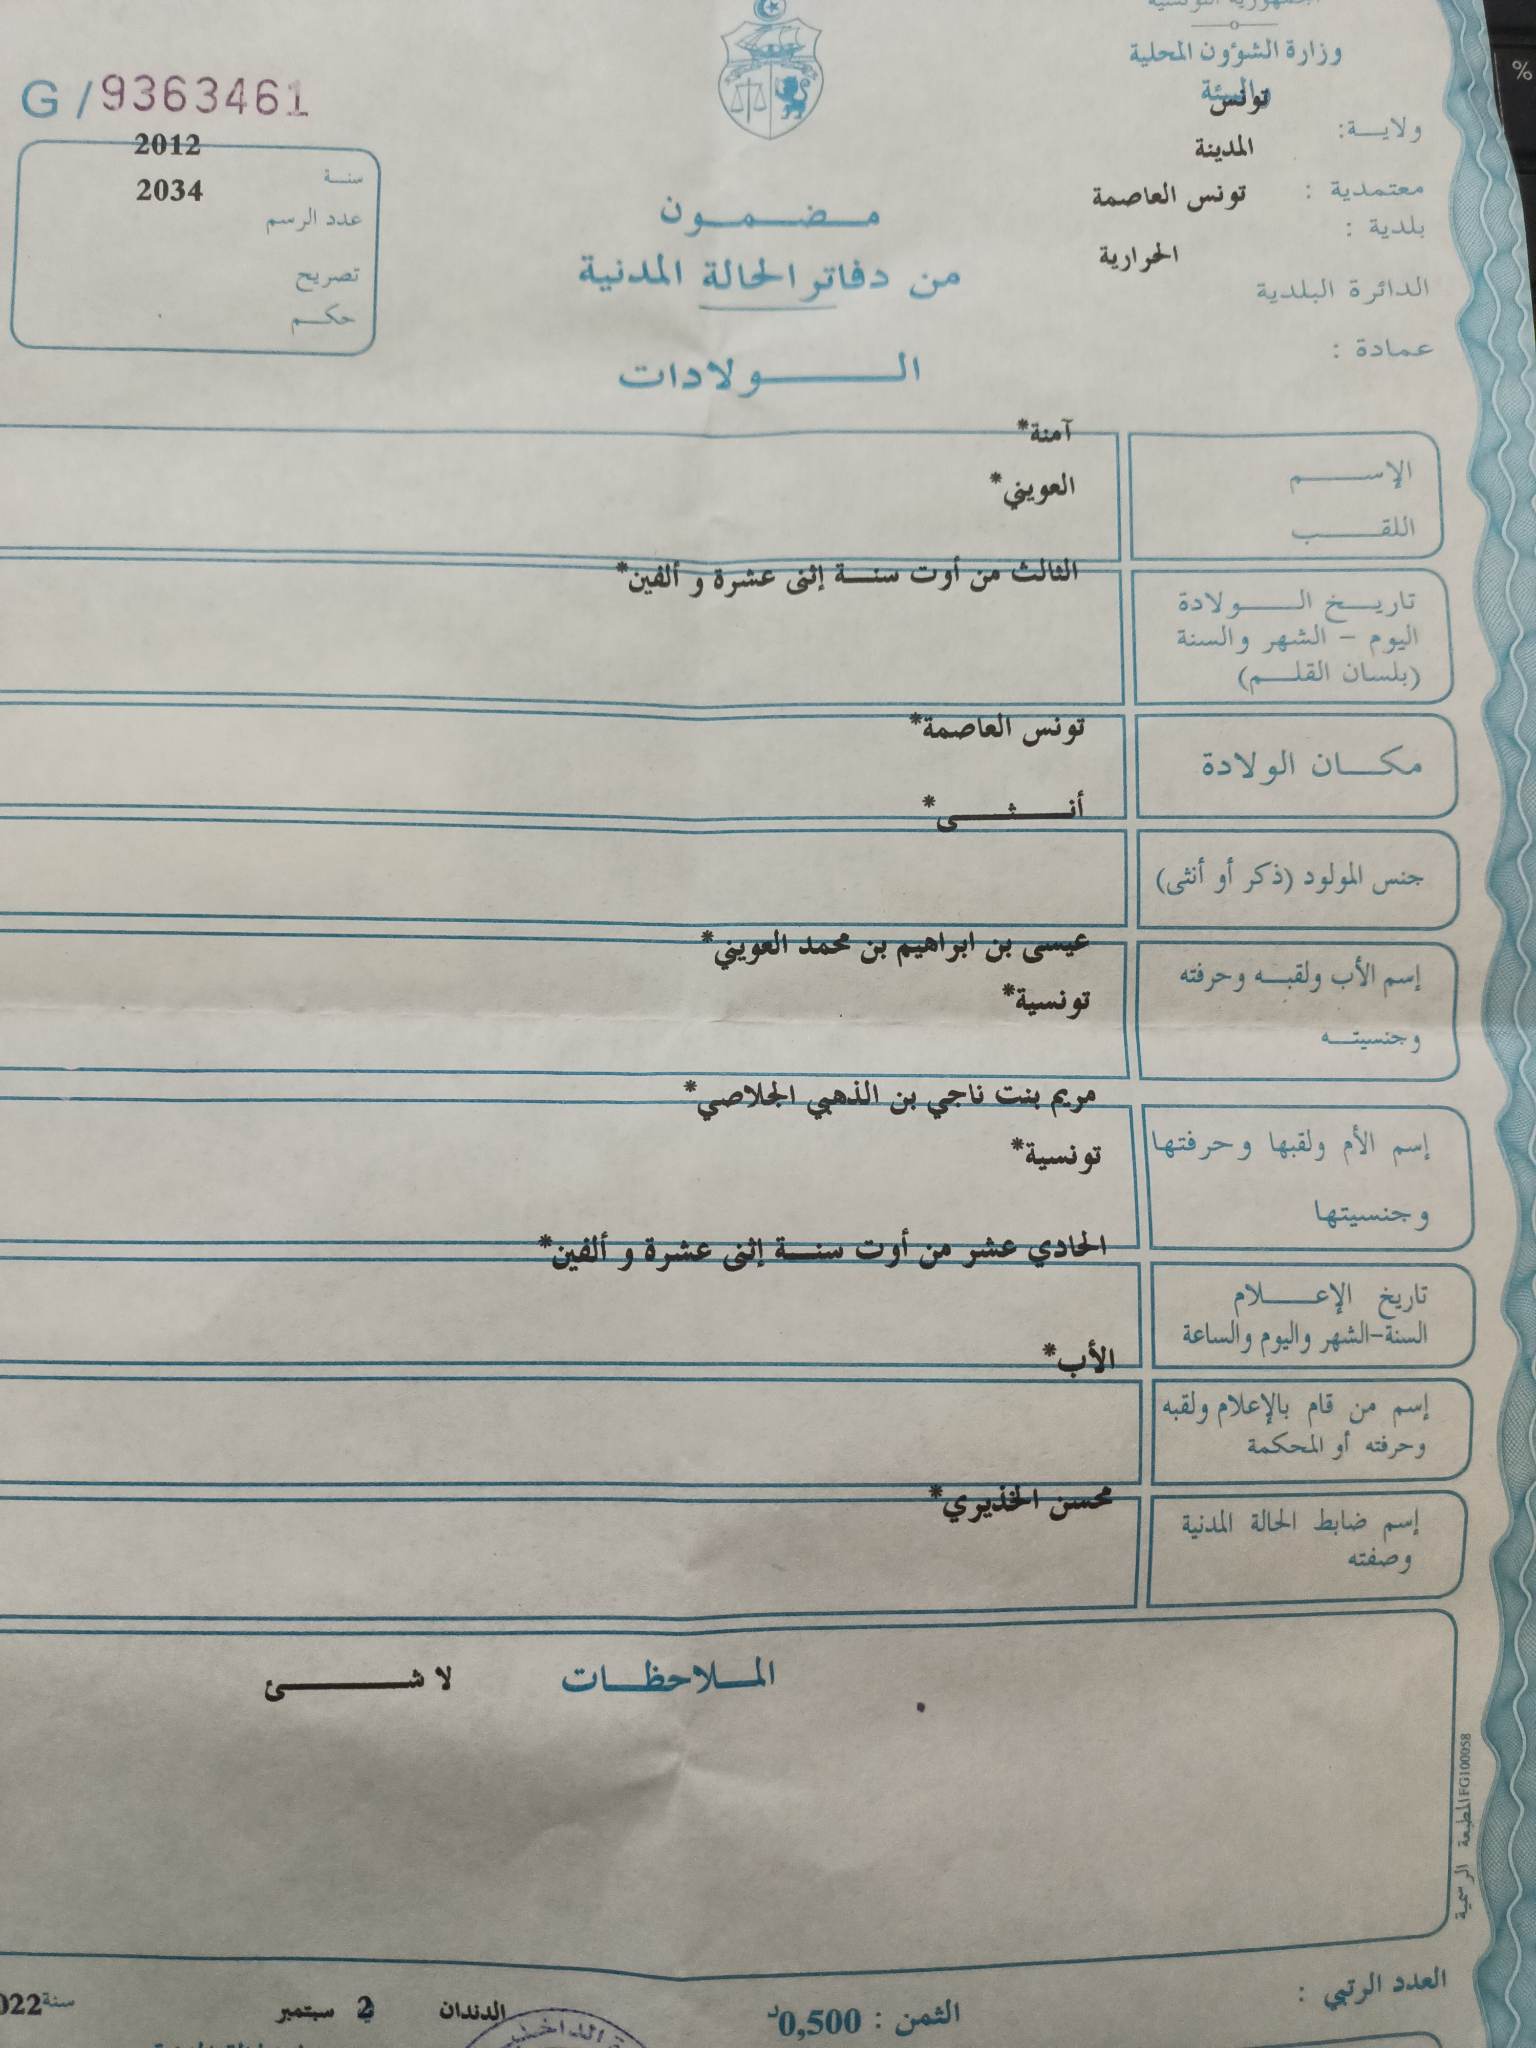 الجمهورية التونسية
وزارة الشؤون المحلية
والبيئة
ولايـة: تونس
معتمدية : المدينة
بلدية : تونس العاصمة
الدائرة البلدية الحرارية
عمادة :
G / 9363461
سنـة 2012
عدد الرسم 2034
تصريح
حكـم
مـضـمـون
من دفاتر الحالة المدنية
الـولادات
الإسـم آمنة*
اللقـب العويني*
تاريـخ الـولادة الثالث من أوت سنـة إثنى عشرة و ألفين*
اليوم – الشهر والسنة
(بلسان القلـم)
مكـان الولادة تونس العاصمة*
جنس المولود (ذكر أو أنثى) أنـثـى*
إسم الأب ولقبـه وحرفته عيسى بن ابراهيم بن محمد العويني*
وجنسيتـه تونسية*
إسم الأم ولقبها وحرفتها مريم بنت ناجي بن الذهبي الجلاصي*
وجنسيتها تونسية*
تاريخ الإعـلام الحادي عشر من أوت سنـة إثنى عشرة و ألفين*
السنة-الشهر واليوم والساعة
إسم من قام بالإعلام ولقبه الأب*
وحرفته أو المحكمة
إسم ضابط الحالة المدنية محسن الخذيري*
وصفته
المـلاحظـات لا شـئ
المطبعة الرسمية FG100058
العدد الرتبي :
الثمن : 0,500د
الدندان 2 سبتمبر سنة 022